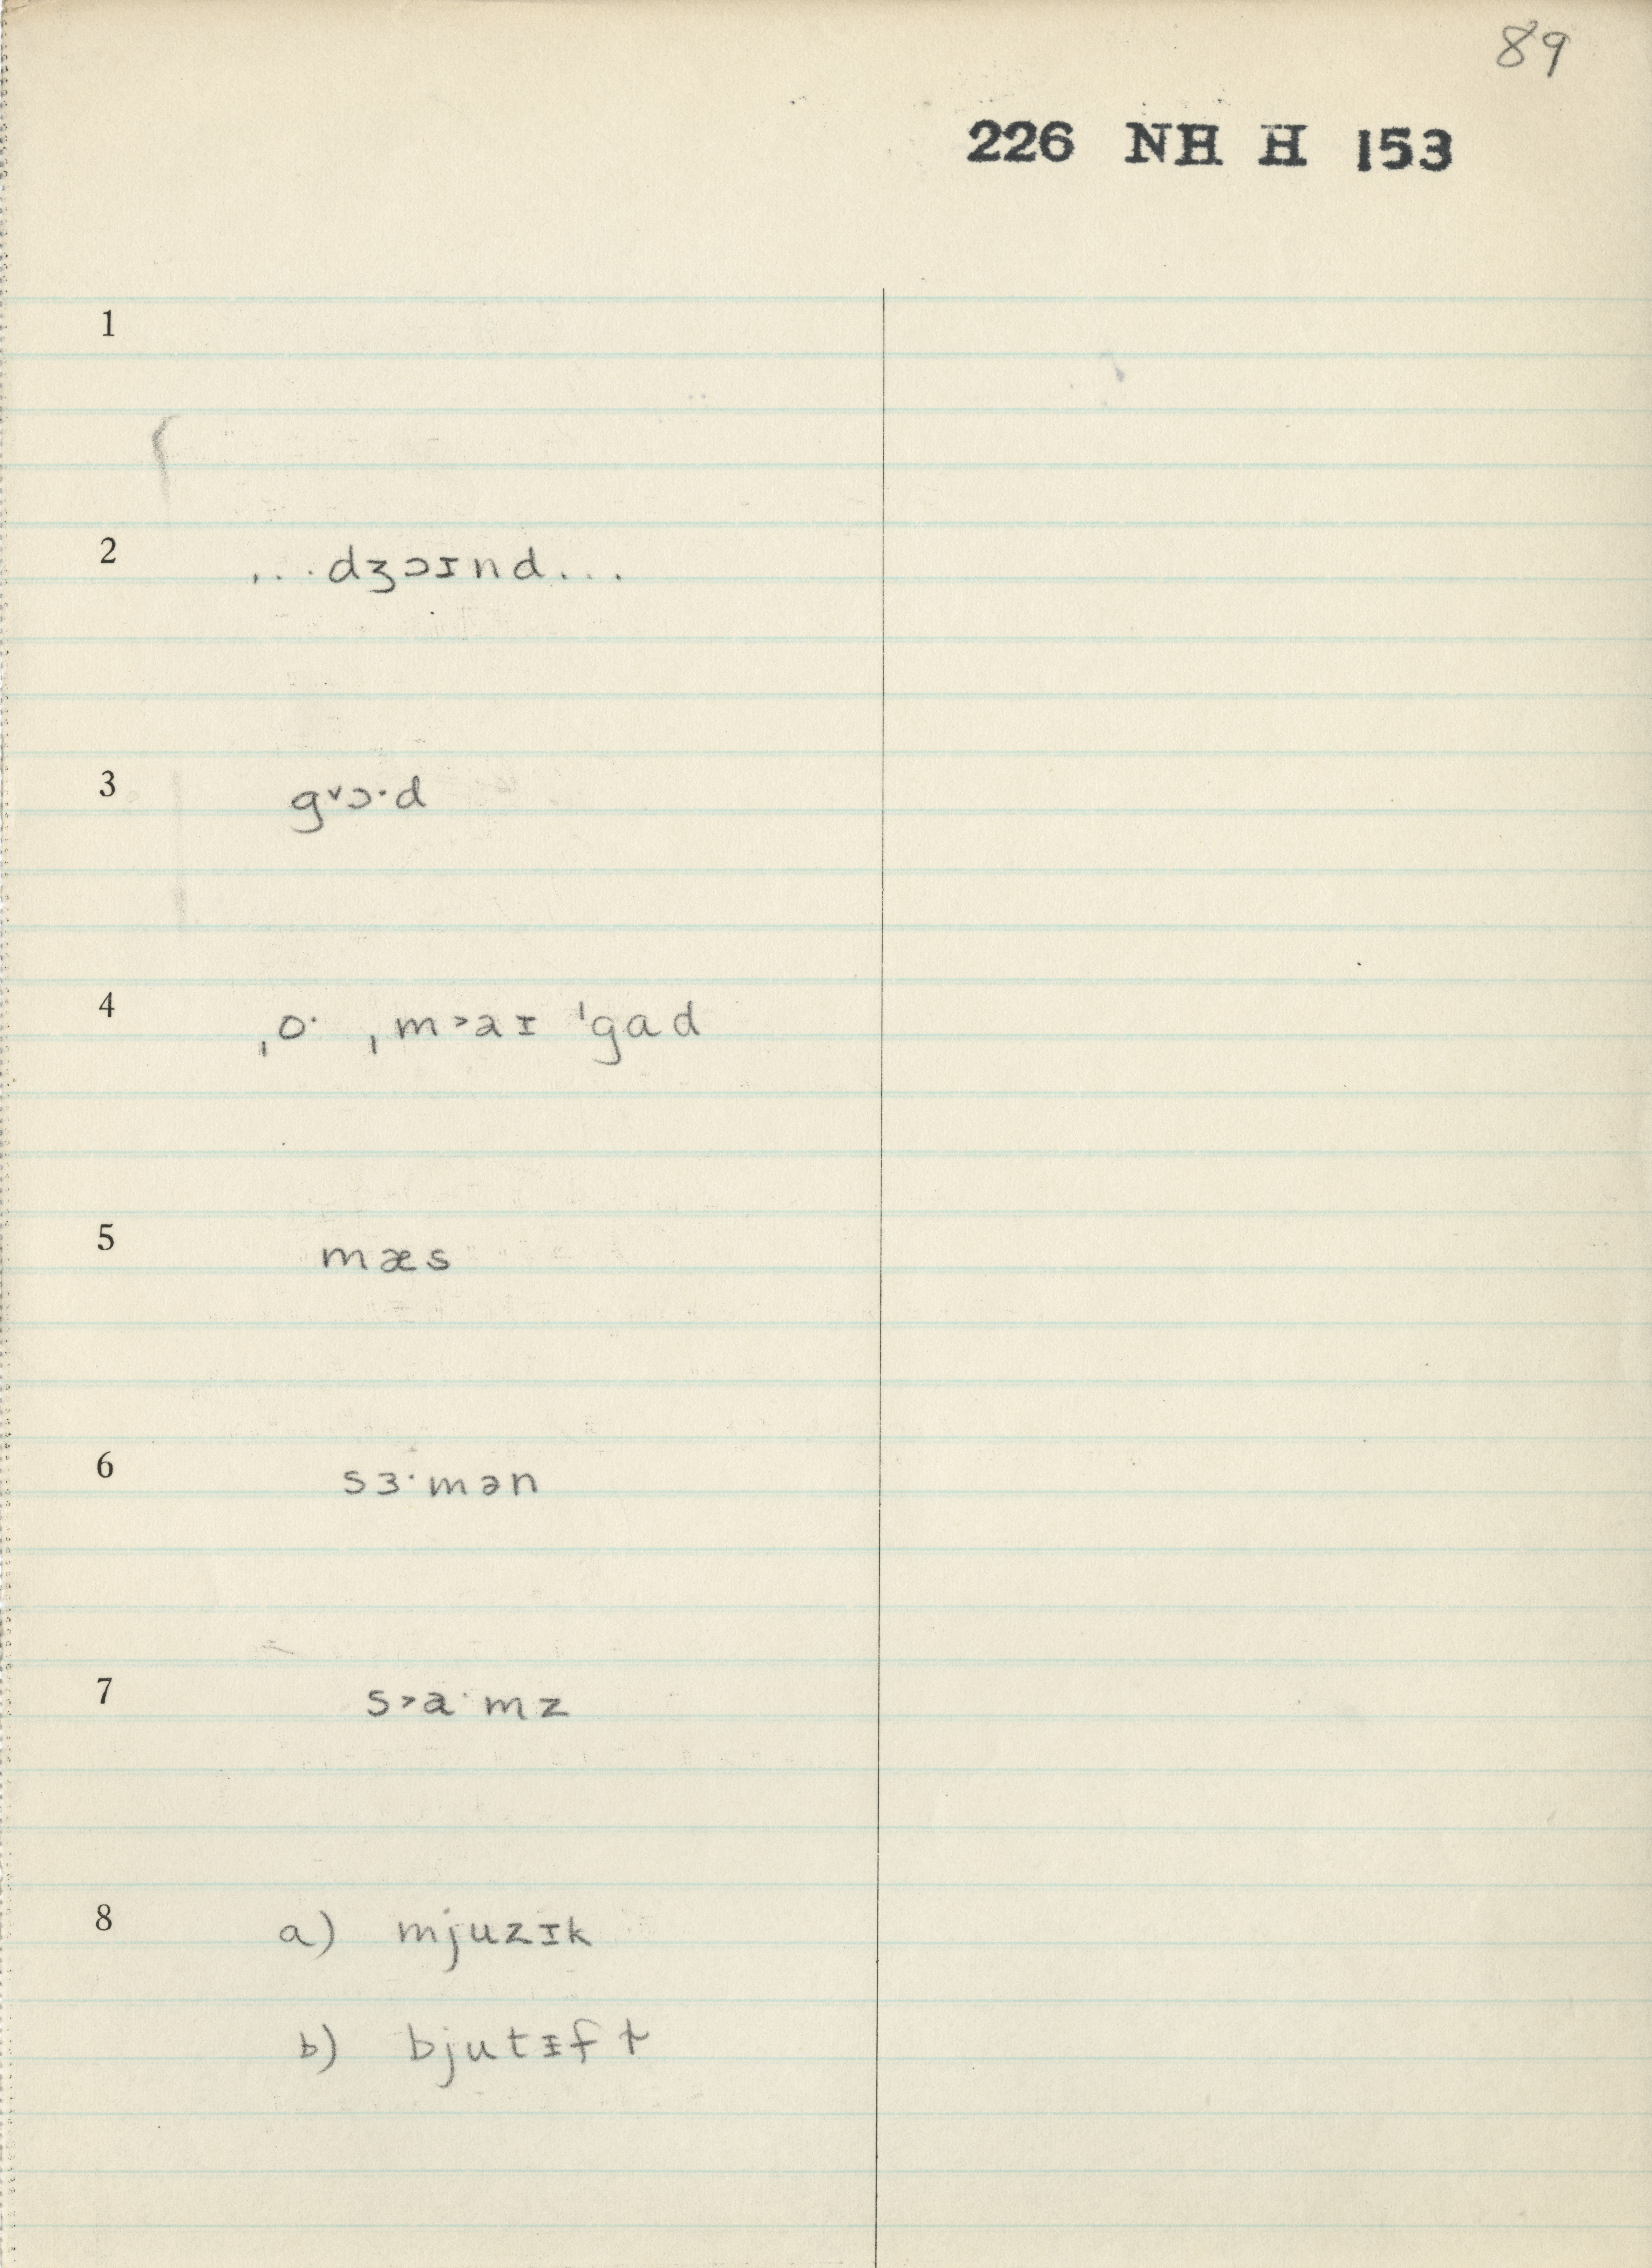 89
226 NH H 153
1
2 ...dʒɔɪnd...
3 g˅ɔ·d
4 ˌo· ˌm˃aɪ ˈgɑd
5 mæs
6 sɜ·mən
7 s˃a·mz
8 a) mjuzɪk
b) bjutᵻfɫ